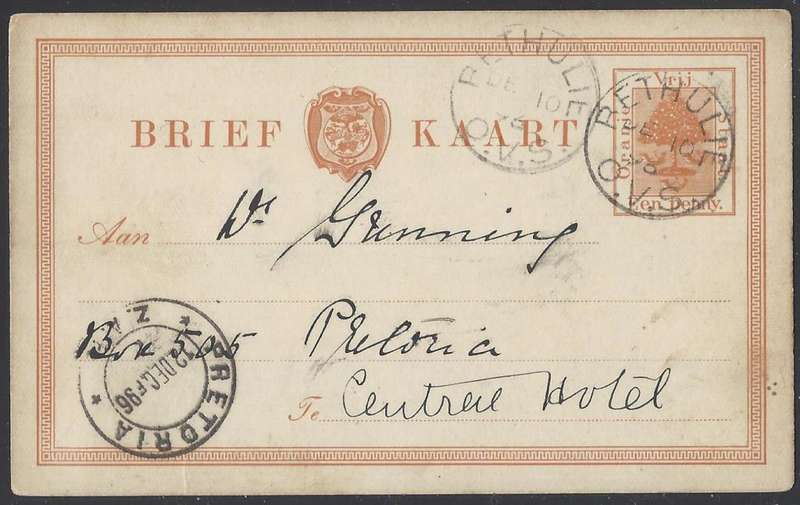 BETHULIE
DE 10
O.V.S.
BETHULIE
DE 10
O.V.S.
Vrij
Oranje
Een Penny.
BRIEF KAART
Aan Wr Grunning
Box 505 Pretoria
Te Central Hotel
PRETORIA
12 DEC 96
Z.A.